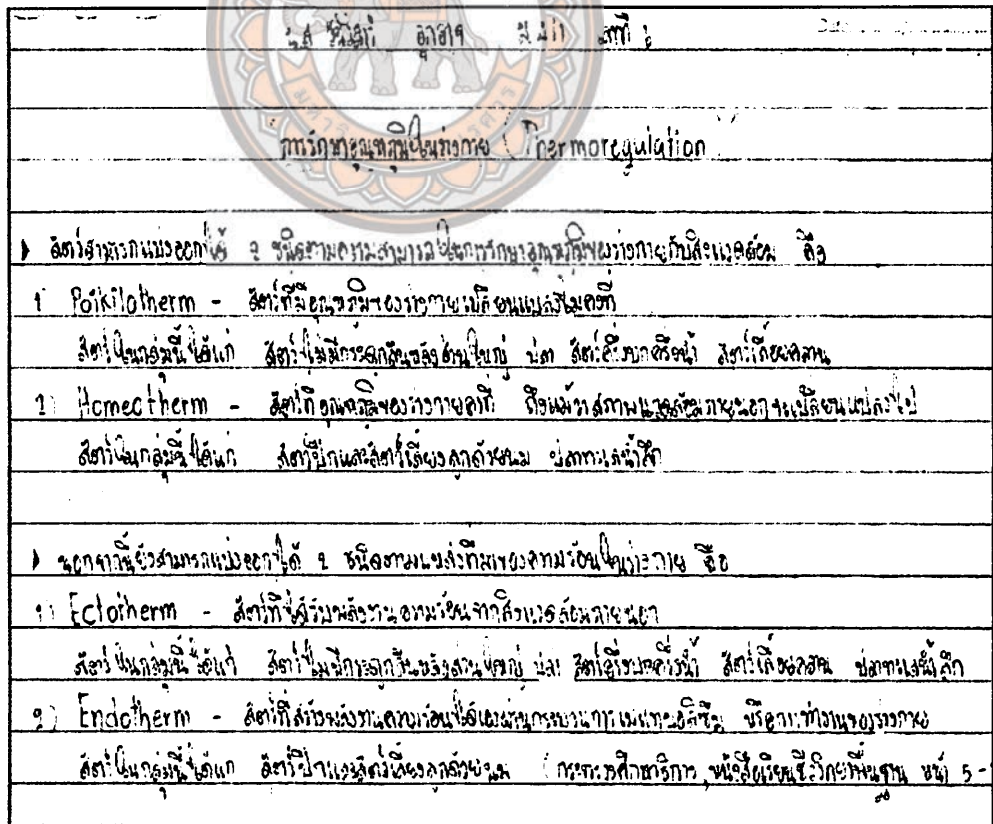 การรักษาอุณหภูมิในร่างกาย (Thermoregulation)
สัตว์สามารถแบ่งออกได้ 2 ชนิดตามความสามารถในการรักษาอุณหภูมิของร่างกายกับสิ่งแวดล้อม คือ
1) Poikilotherm - สัตว์ที่มีอุณหภูมิของร่างกายเปลี่ยนแปลงไม่คงที่
สัตว์ในกลุ่มนี้ได้แก่ สัตว์ไม่มีกระดูกสันหลังส่วนใหญ่ ปลา สัตว์ครึ่งบกครึ่งน้ำ สัตว์เลื้อยคลาน
2) Homeotherm - สัตว์ที่อุณหภูมิของร่างกายคงที่ ถึงแม้ว่าสภาพแวดล้อมภายนอกจะเปลี่ยนแปลงไป
สัตว์ในกลุ่มนี้ได้แก่ สัตว์ปีกและสัตว์เลี้ยงลูกด้วยนม ปลาทะเลน้ำลึก
นอกจากนี้ยังสามารถแบ่งออกได้ 2 ชนิดตามแหล่งที่มาของความร้อนในร่างกาย คือ
1) Ectotherm - สัตว์ที่ได้รับพลังงานความร้อนจากสิ่งแวดล้อมภายนอก
สัตว์ในกลุ่มนี้ได้แก่ สัตว์ไม่มีกระดูกสันหลังส่วนใหญ่ ปลา สัตว์ครึ่งบกครึ่งน้ำ สัตว์เลื้อยคลาน ปลาทะเลน้ำลึก
2) Endotherm - สัตว์ที่สร้างพลังงานความร้อนได้เองผ่านกระบวนการเมแทบอลิซึม หรือการทำงานของร่างกาย
สัตว์ในกลุ่มนี้ได้แก่ สัตว์ปีกและสัตว์เลี้ยงลูกด้วยนม (กระทรวงศึกษาธิการ, หนังสือเรียนชีววิทยาพื้นฐาน หน้า 5-